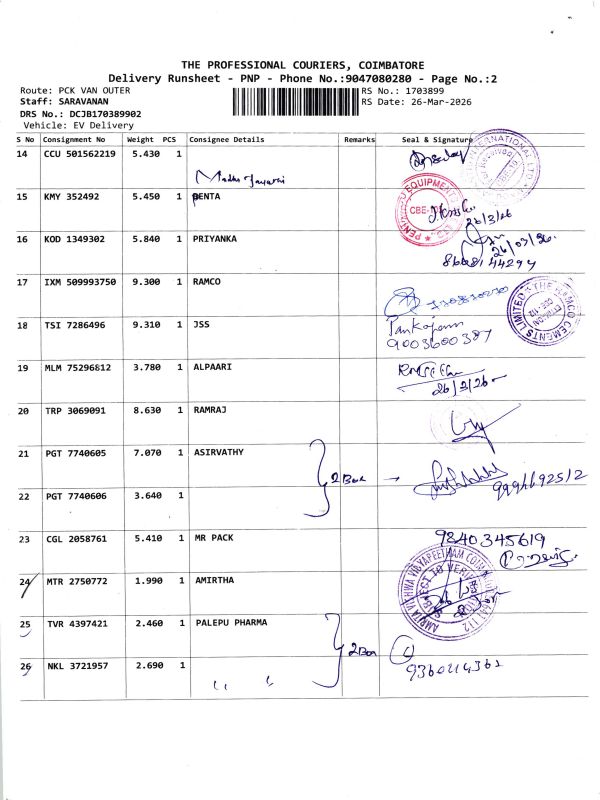 THE PROFESSIONAL COURIERS, COIMBATORE
Delivery Runsheet - PNP - Phone No.:9047080280 - Page No.:2
Route: PCK VAN OUTER
RS No.: 1703899
Staff: SARAVANAN
RS Date: 26-Mar-2026
DRS No.: DCJB170389902
Vehicle: EV Delivery
S No Consignment No Weight PCS Consignee Details Remarks Seal & Signature
14 CCU 501562219 5.430 1
15 KMY 352492 5.450 1 PENTA 26/3/26
16 KOD 1349302 5.840 1 PRIYANKA 26/03/26
17 IXM 509993750 9.300 1 RAMCO
18 TSI 7286496 9.310 1 JSS
9003600387
19 MLM 75296812 3.780 1 ALPAARI
26/3/26
20 TRP 3069091 8.630 1 RAMRAJ
21 PGT 7740605 7.070 1 ASIRVATHY
2 Box →
22 PGT 7740606 3.640 1
23 CGL 2058761 5.410 1 MR PACK 9840345619
24 MTR 2750772 1.990 1 AMIRTHA
25 TVR 4397421 2.460 1 PALEPU PHARMA
2 Box
26 NKL 3721957 2.690 1